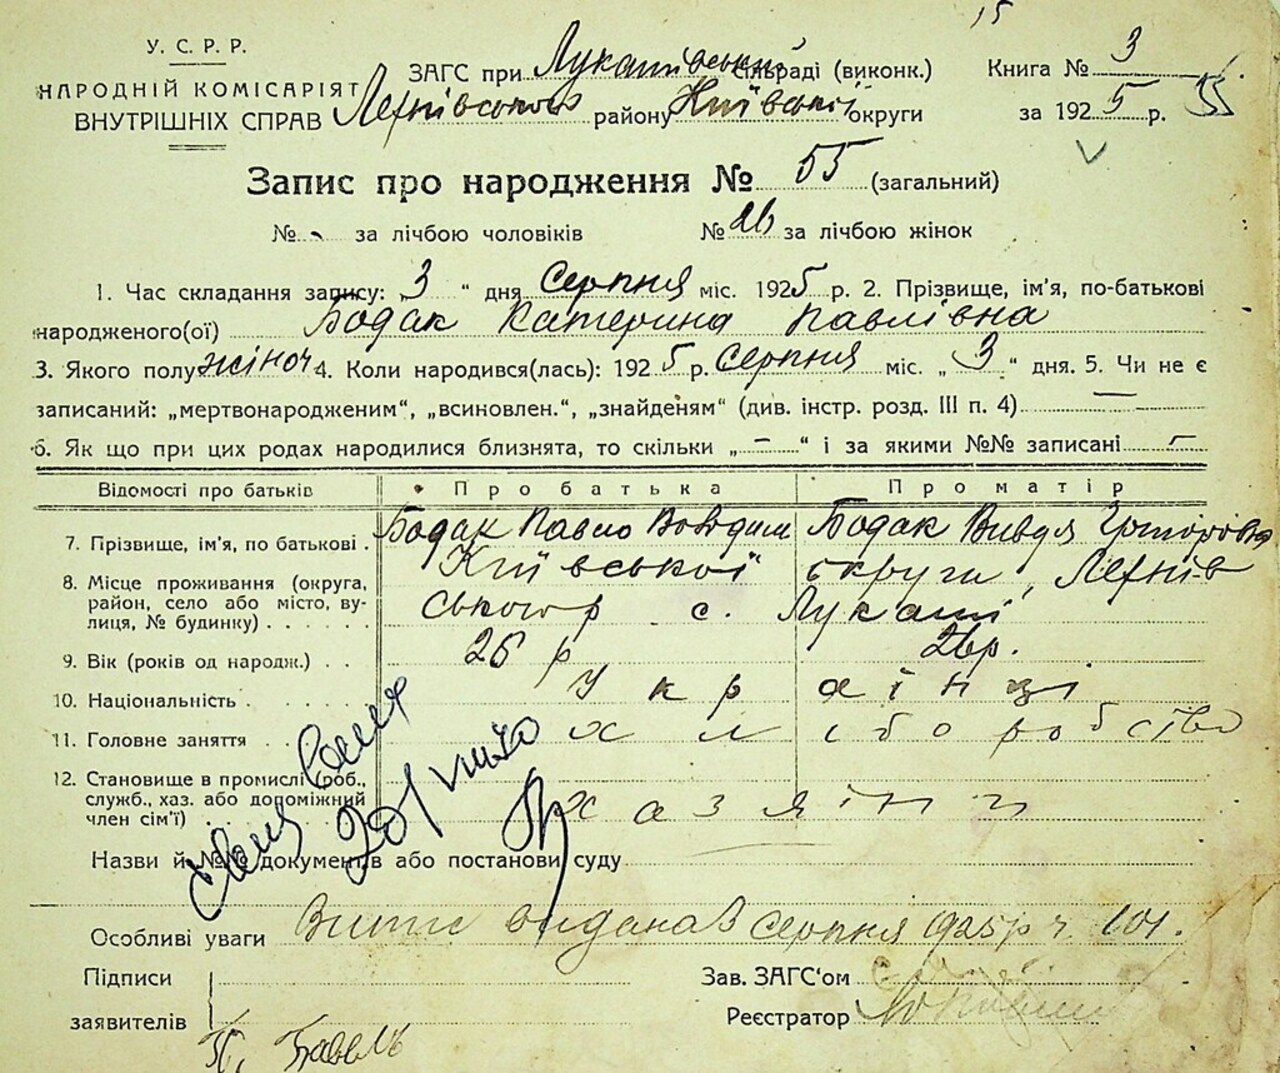 15
У. С. Р. Р.
НАРОДНІЙ КОМІСАРІЯТ
ВНУТРІШНІХ СПРАВ
ЗАГС при Лукашівський сільраді (виконк.)
району Київської округи
Книга № 3
за 1925 р. 55
Запис про народження № 55 (загальний)
№ - за лічбою чоловіків № 26 за лічбою жінок
1. Час складання запису: „3“ дня Серпня міс. 1925 р. 2. Прізвище, ім'я, по-батькові
народженого(ої) Бодак Катерина Павлівна
3. Якого полу жіноч 4. Коли народився(лась): 1925 р. Серпня міс. „3“ дня. 5. Чи не є
записаний: „мертвонародженим“, „всиновлен.“, „знайденям“ (див. інстр. розд. III п. 4) —
6. Як що при цих родах народилися близнята, то скільки „—“ і за якими №№ записані —
Відомості про батьків Про батька Про матір
7. Прізвище, ім'я, по батькові . Бодак Павло Володим Бодак
8. Місце проживання (округа, Київської округи,
район, село або місто, ву-
лиця, № будинку) . . . . . . ського р с. Лукаші
9. Вік (років од народж.) . . 26 р 26 р.
10. Національність . українці
11. Головне заняття . . хліборобство
12. Становище в промислі (роб.,
служб., хаз. або допоміжний
член сім'ї) . хазяїни
Назви й №№ документів або постанови суду
Особливі уваги видана 3 серпня 1925 р ч. 101.
Підписи
заявителів
Зав. ЗАГС'ом
Реєстратор